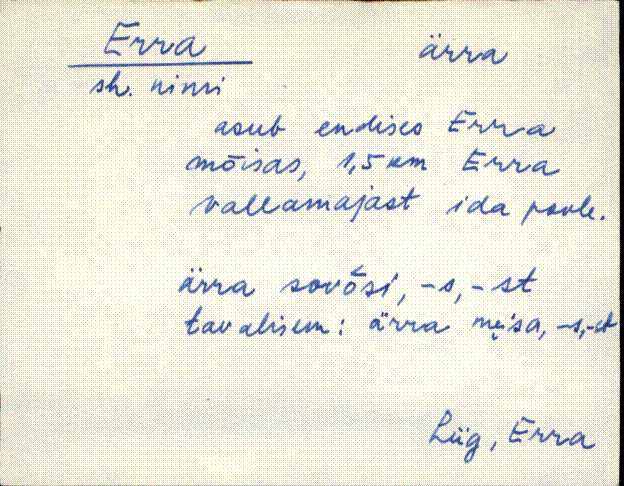 Erra ärra
sh. nimi
asub endises Erra
mõisas, 1,5 km Erra
vallamajast ida poole.
ärra sovõ̒si, -s, -st
tavalisem: ärra mẹisa, -s, -st
Lüg, Erra